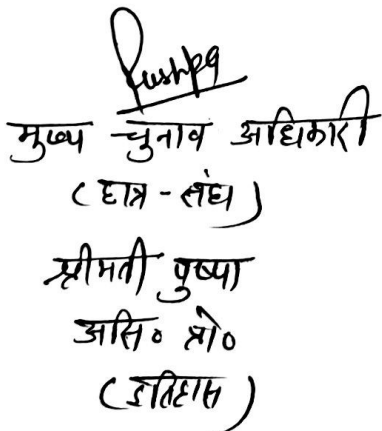 Pushpa
मुख्य चुनाव अधिकारी
(छात्र - संघ)
श्रीमती पुष्पा
असि० प्रो०
(इतिहास)